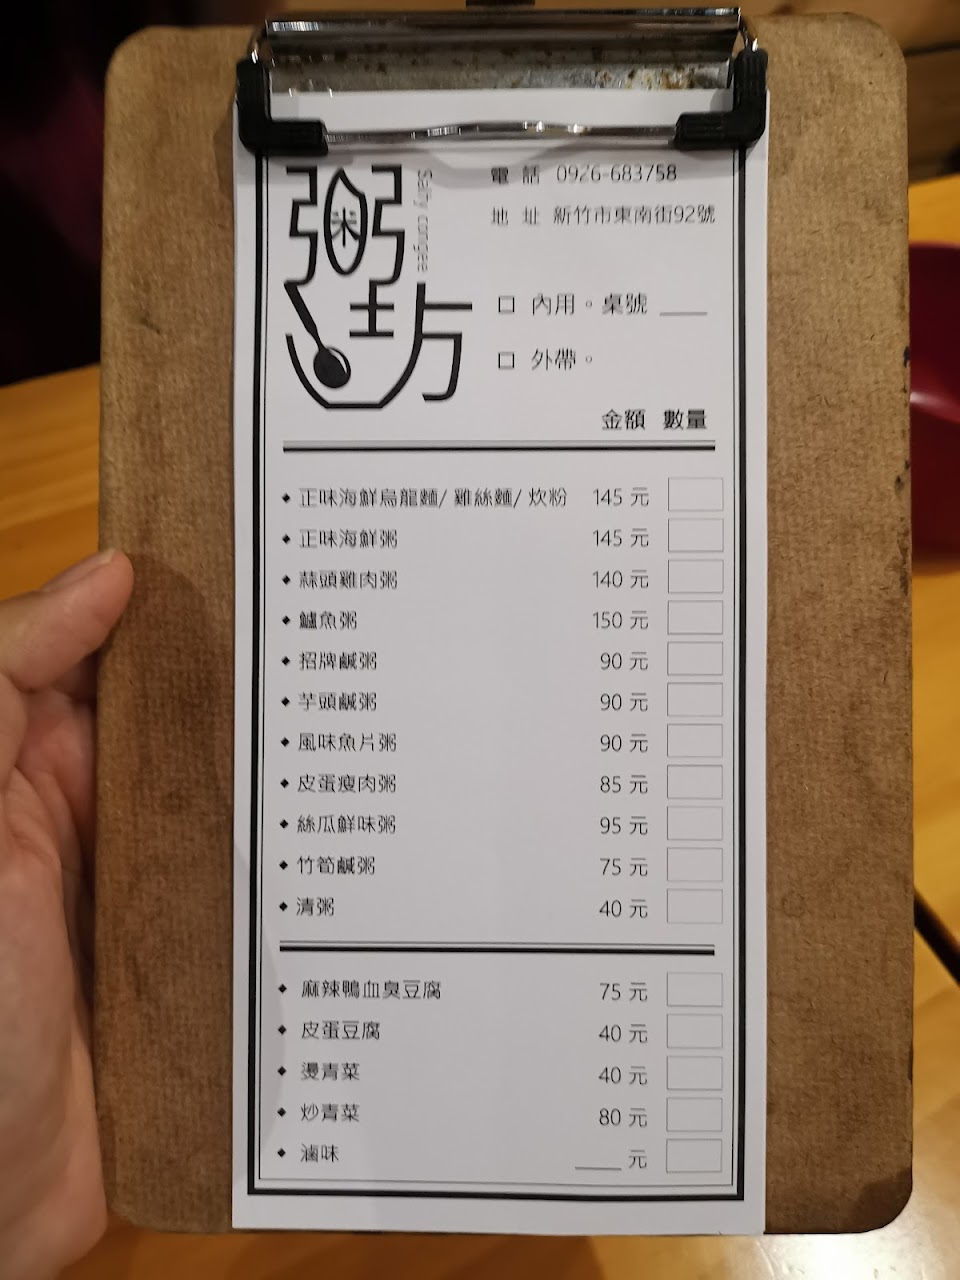 粥坊
Salty congee
電話 0926-683758
地址 新竹市東南街92號
□ 內用。桌號 ____
□ 外帶。
金額 數量
◆ 正味海鮮烏龍麵/ 雞絲麵/ 炊粉 145 元
◆ 正味海鮮粥 145 元
◆ 蒜頭雞肉粥 140 元
◆ 鱸魚粥 150 元
◆ 招牌鹹粥 90 元
◆ 芋頭鹹粥 90 元
◆ 風味魚片粥 90 元
◆ 皮蛋瘦肉粥 85 元
◆ 絲瓜鮮味粥 95 元
◆ 竹筍鹹粥 75 元
◆ 清粥 40 元
◆ 麻辣鴨血臭豆腐 75 元
◆ 皮蛋豆腐 40 元
◆ 燙青菜 40 元
◆ 炒青菜 80 元
◆ 滷味 ____ 元